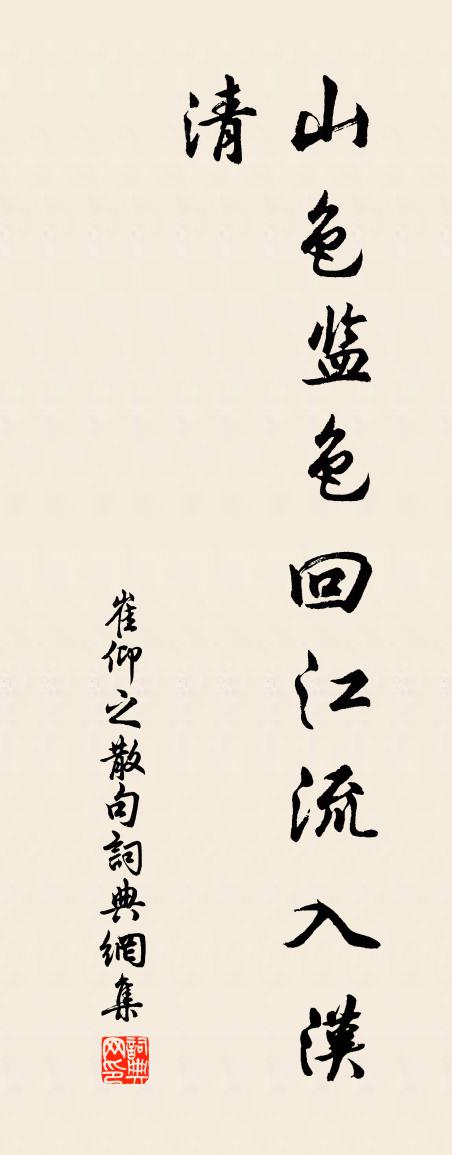 山色监色回江流入漢
清
崔仰之散句詞典網集
詞典
网印